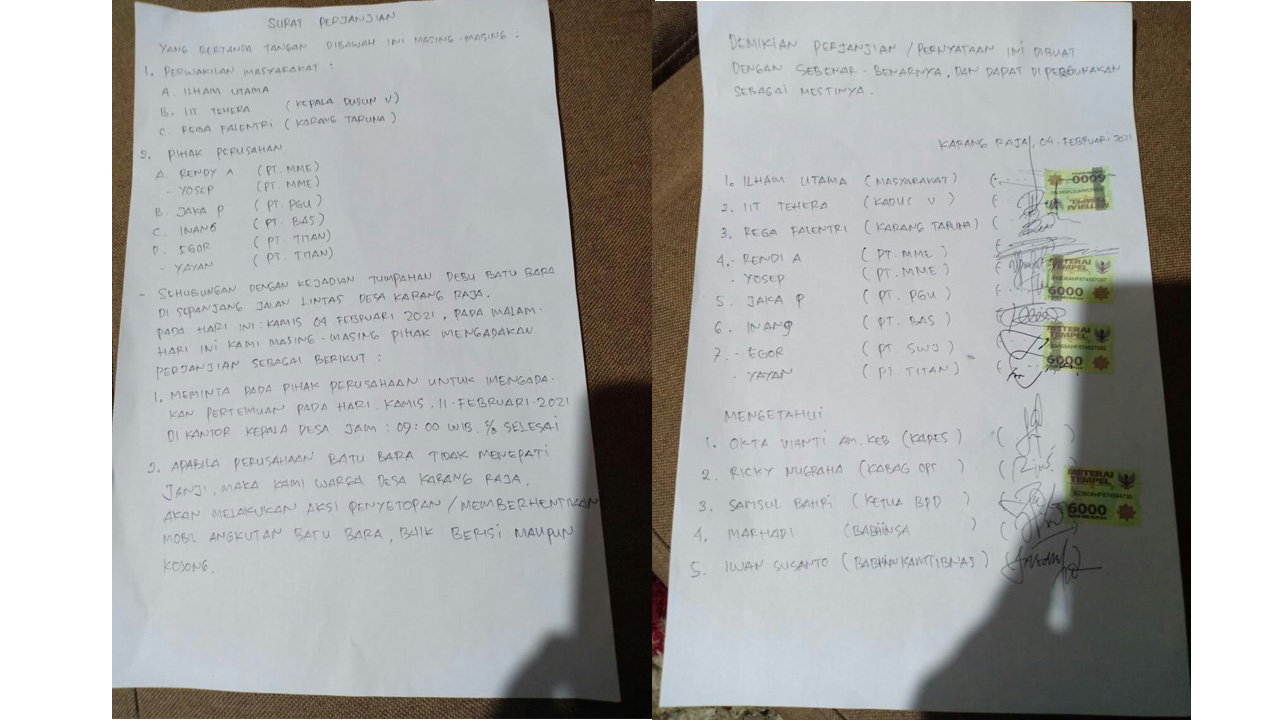 SURAT PERJANJIAN
YANG BERTANDA TANGAN DIBAWAH INI MASING-MASING :
1. PERWAKILAN MASYARAKAT :
A. ILHAM UTAMA
B. IIT TEHERA (KEPALA DUSUN V)
C. REGA FALENTRI (KARANG TARUNA)
2. PIHAK PERUSAHAN
A. RENDY A (PT. MME)
- YOSEP (PT. MME)
B. JAKA P (PT. PGU)
C. INANG (PT. BAS)
D. EGOR (PT. TITAN)
- YAYAN (PT. TITAN)
- SEHUBUNGAN DENGAN KEJADIAN TUMPAHAN DEBU BATU BARA
DI SEPANJANG JALAN LINTAS DESA KARANG RAJA.
PADA HARI INI : KAMIS 04 FEBRUARI 2021, PADA MALAM
HARI INI KAMI MASING-MASING PIHAK MENGADAKAN
PERJANJIAN SEBAGAI BERIKUT :
1. MEMINTA PADA PIHAK PERUSAHAAN UNTUK MENGADA-
KAN PERTEMUAN PADA HARI KAMIS, 11-FEBRUARI-2021
DI KANTOR KEPALA DESA JAM : 09:00 WIB. S/D SELESAI
2. APABILA PERUSAHAAN BATU BARA TIDAK MENEPATI
JANJI, MAKA KAMI WARGA DESA KARANG RAJA.
AKAN MELAKUKAN AKSI PENYETOPAN / MEMBERHENTIKAN
MOBIL ANGKUTAN BATU BARA, BAIK BERISI MAUPUN
KOSONG.
DEMIKIAN PERJANJIAN / PERNYATAAN INI DIBUAT
DENGAN SEBENAR-BENARNYA, DAN DAPAT DI PERGUNAKAN
SEBAGAI MESTINYA.
KARANG RAJA, 04-FEBRUARI 2021
1. ILHAM UTAMA (MASYARAKAT)
2. IIT TEHERA (KADUS V)
3. REGA FALENTRI (KARANG TARUNA)
4. - RENDI A (PT. MME)
- YOSEP (PT. MME)
5. JAKA P (PT. PGU)
6. INANG (PT. BAS)
7. - EGOR (PT. SWJ)
- YAYAN (PT. TITAN)
METERAI
TEMPEL
6000
METERAI
TEMPEL
6000
METERAI
TEMPEL
6000
MENGETAHUI
1. OKTA VIANTI AM. KEB (KADES)
2. RICKY NUGRAHA (KABAG OPS)
3. SAMSUL BAHRI (KETUA BPD)
4. MARHADI (BABHINSA)
5. IWAN SUSANTO (BABHINKAMTIBNAS)
METERAI
TEMPEL
6000